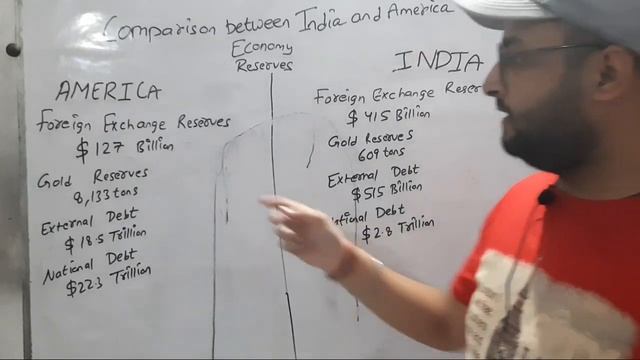 Comparison between India and America
Economy
Reserves
AMERICA
Foreign Exchange Reserves
$ 127 Billion
Gold Reserves
8,133 tons
External Debt
$ 18.5 Trillion
National Debt
$22.3 Trillion
INDIA
Foreign Exchange Reser
$ 415 Billion
Gold Reserves
609 tons
External Debt
$515 Billion
tional Debt
$2.8 Trillion